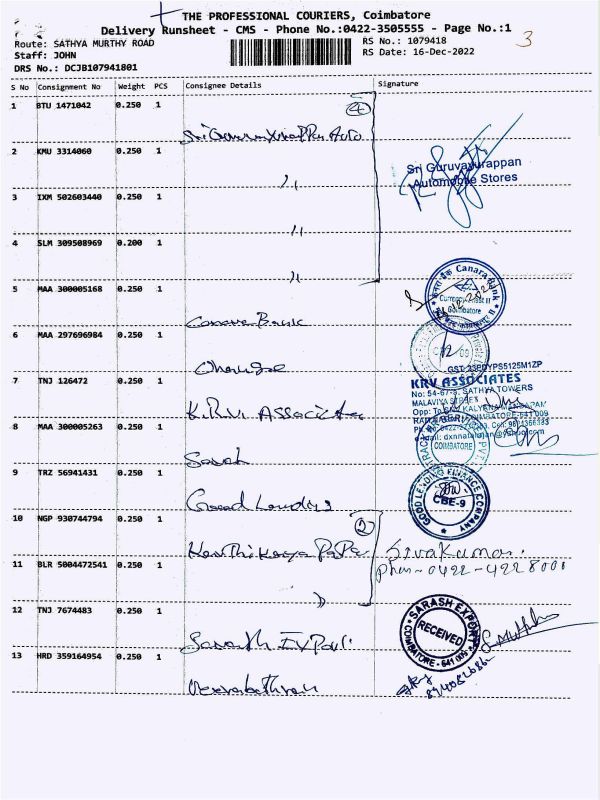 THE PROFESSIONAL COURIERS, Coimbatore
Delivery Runsheet - CMS - Phone No.:0422-3505555 - Page No.:1
3
Route: SATHYA MURTHY ROAD
RS No.: 1079418
Staff: JOHN
RS Date: 16-Dec-2022
DRS No.: DCJB107941801
S No Consignment No Weight PCS Consignee Details Signature
1 BTU 1471042 0.250 1
4
Sri Guruvayurappan Auto
2 KMU 3314060 0.250 1
Sri Guruvayurappan
Automobile Stores
"
3 IXM 502603440 0.250 1
"
4 SLM 309508969 0.200 1
"
5 MAA 300005168 0.250 1
Canara Bank
Coimbatore
Canara Bank
6 MAA 297696984 0.250 1
GST: 33BDYPS5125M1ZP
7 TNJ 126472 0.250 1
KRV ASSOCIATES
SATHYA TOWERS
MALAVIYA STREET
K.R.V. Associates
8 MAA 300005263 0.250 1
COIMBATORE
Sarah
9 TRZ 56941431 0.250 1
GOOD LENDING FINANCE COMPANY
CBE-9
Good Lending
10 NGP 930744794 0.250 1
2
Karthikeya Paper
Sivakumar.
11 BLR 5004472541 0.250 1
phn-0422-4228001
"
12 TNJ 7674483 0.250 1
SARASH EXPORT
RECEIVED
COIMBATORE - 641 009
Sarash Export
13 HRD 359164954 0.250 1
Veerabathiran